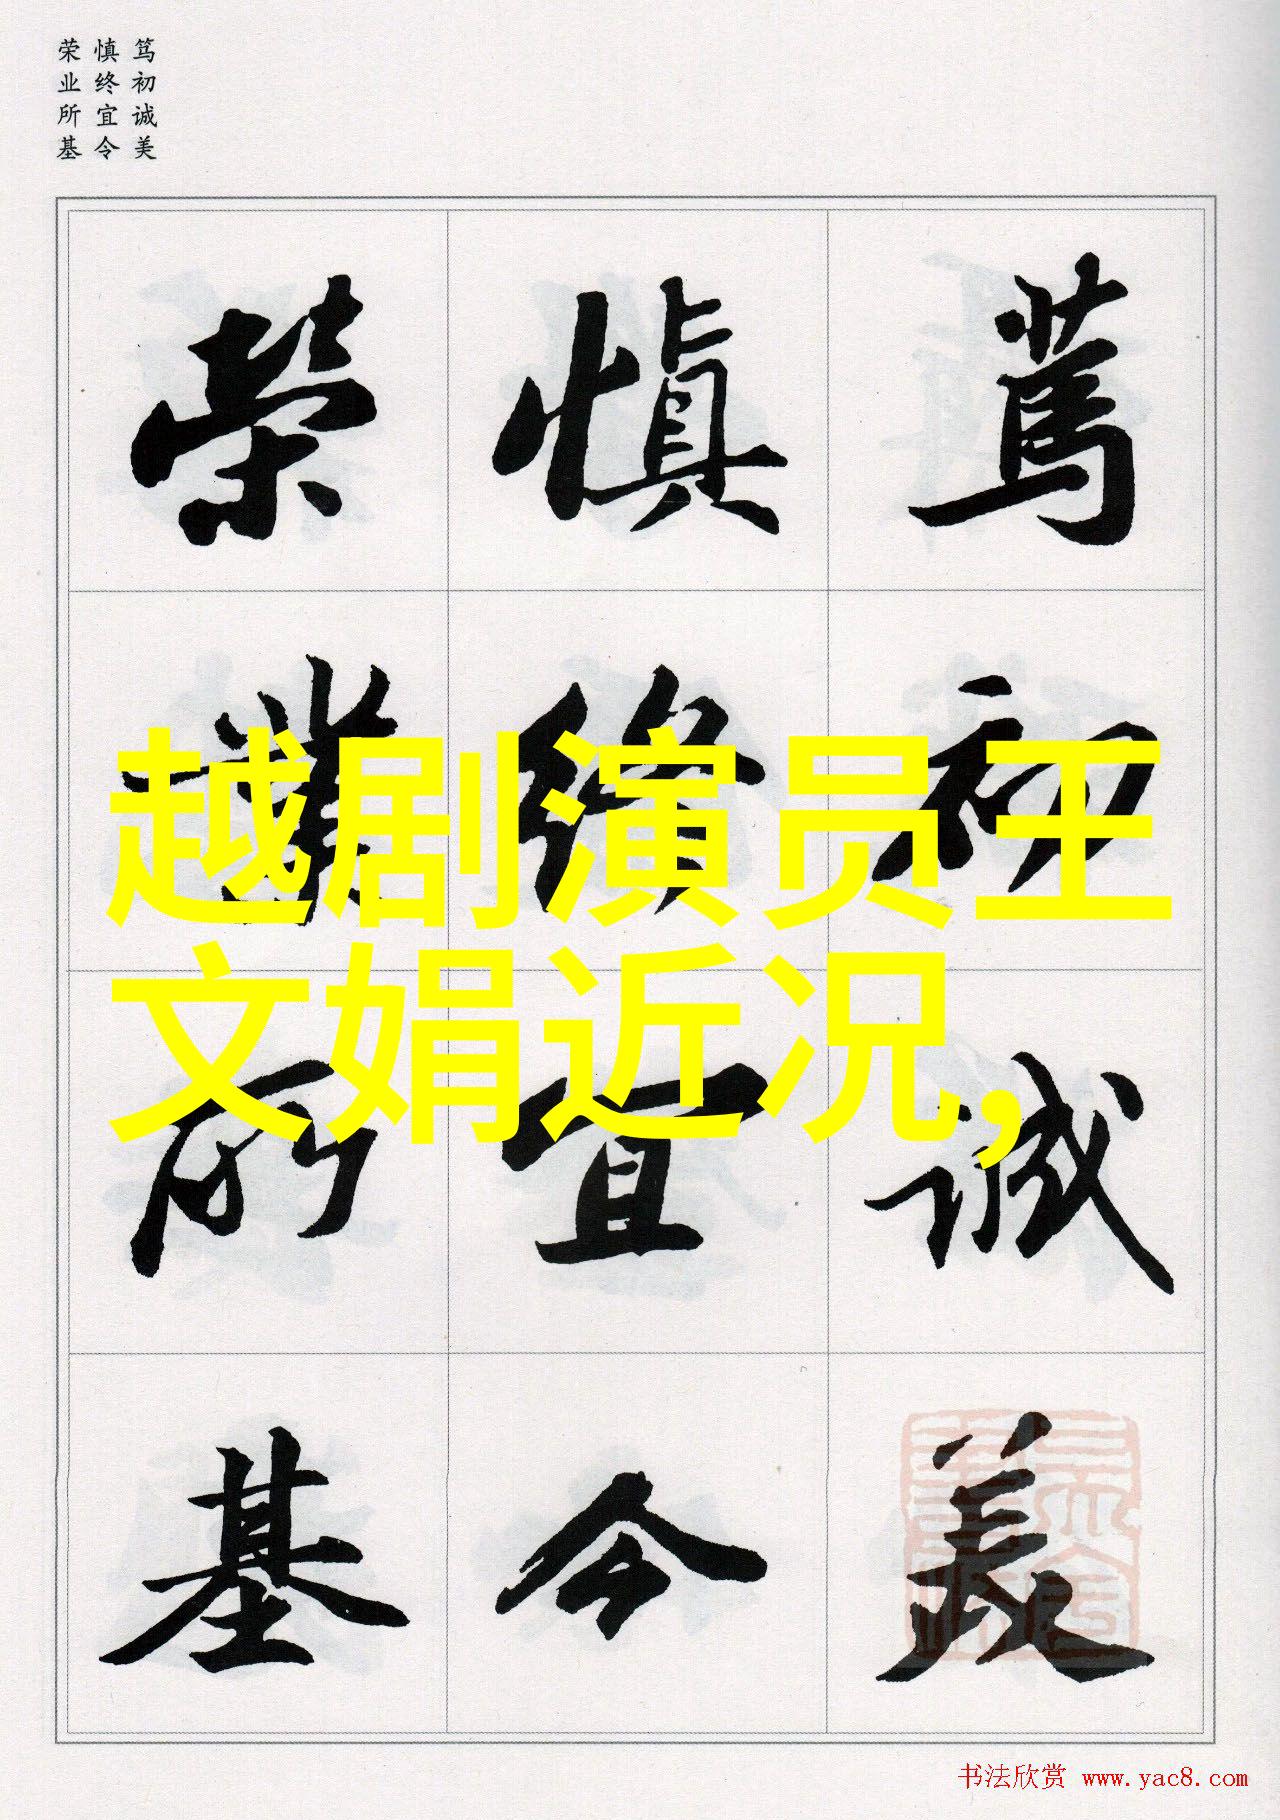 笃初诚美
慎终宜令
荣业所基
篤初诚美
慎终宜令
榮業所基
越剧演员王
文娟近况,
书法欣赏 www.yac8.com